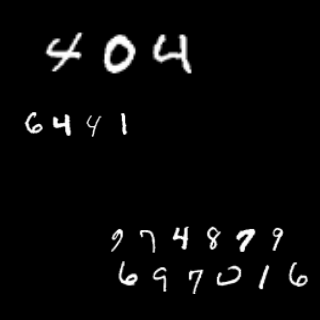 404
6441
974879
697016